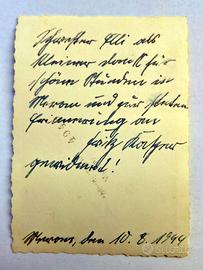 Schwester Elli als
kleiner Dank für
schöne Stunden in
Meran und zur steten
Erinnerung an
Fritz Kasper
gewidmet!
Meran, den 10. 8. 1944